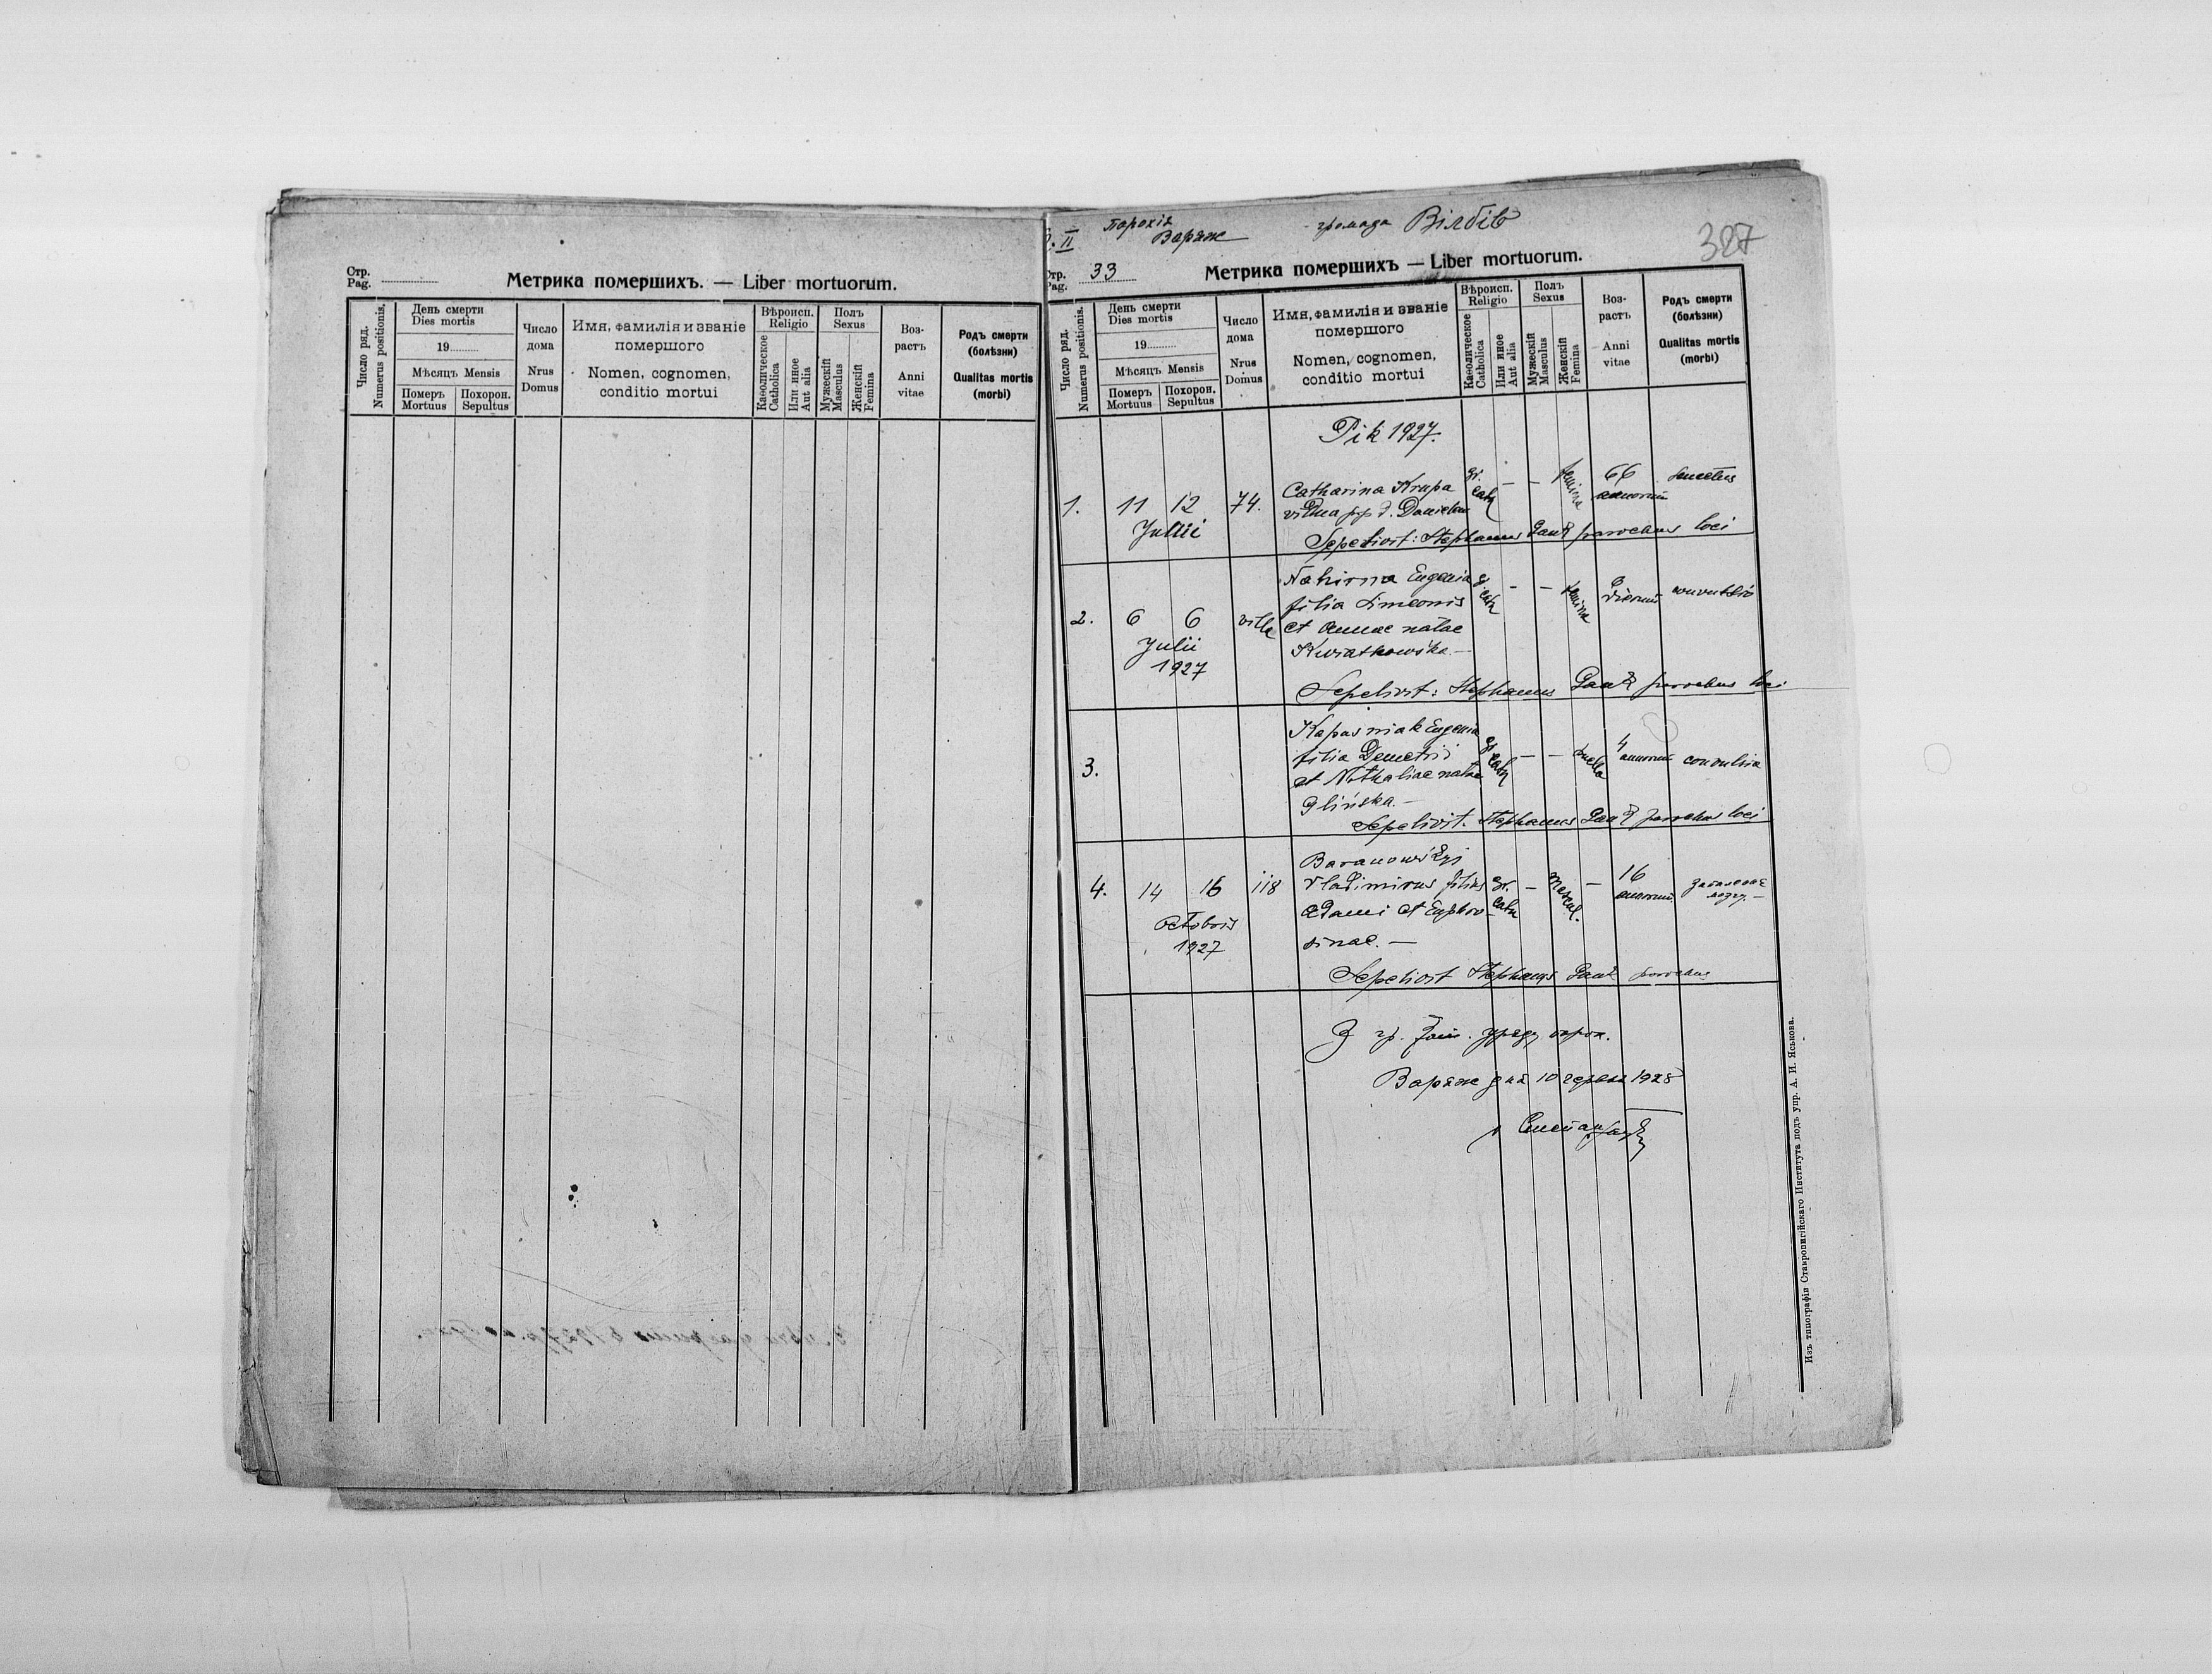 Стр.
Pag.
Метрика померших. — Liber mortuorum.
Число ряд.
Numerus positionis.
День смерти
Dies mortis
19
Мѣсяцъ Mensis
Померъ
Mortuus
Похорон.
Sepultus
Число
дома
Nrus
Domus
Имя, фамилія и званіе
помершого
Nomen, cognomen,
conditio mortui
Вѣроисп.
Religio
Каѳолическое
Catholica
Или иное
Aut alia
Полъ
Sexus
Мужескій
Masculus
Женскій
Femina
Воз-
растъ
Anni
vitae
Родъ смерти
(болѣзни)
Qualitas mortis
(morbi)
Парохія
Варяж
громада Вілбів
II
387
Стр.
Pag. 33
Метрика померших — Liber mortuorum.
Число ряд.
Numerus positionis.
День смерти
Dies mortis
19
Мѣсяцъ Mensis
Померъ
Mortuus
Похорон.
Sepultus
Число
дома
Nrus
Domus
Имя, фамилія и званіе
помершого
Nomen, cognomen,
conditio mortui
Вѣроисп.
Religio
Каѳолическое
Catholica
Или иное
Aut alia
Полъ
Sexus
Мужескій
Masculus
Женскій
Femina
Воз-
растъ
Anni
vitae
Родъ смерти
(болѣзни)
Qualitas mortis
(morbi)
Рік 1927.
1. 11 12 74. Catharina Krupa gr. — — femina 66
vidua p. d. cath annorum
Julii
Sepelivit: Stephanus parochus loci
2. 6 6 Nahirna Eugenia gr. — — femina dierum
filia Simeonis cath
et Annae natae
Julii
1927
Kwiatkowska.—
Sepelivit: Stephanus parochus loci
3. Kapasniak Eugenia gr. — — puella 4 convulsia
filia Demetrii cath annorum
et Nathaliae natae
Glińska.—
Sepelivit. Stephanus parochus loci
4. 14 16 118 Baranowskyj
Vladimirus filius gr. — mascul. — 16 запалене
Adami et Euphro- cath annorum мозгу.—
Octobris
1927
sinae.—
Sepelivit Stephanus parochus
З гр. уряду парох.
Варяж дня 10 червня 1928
Степан
Изъ типографіи Ставропигійскаго Института подъ упр. А. И. Яськова.